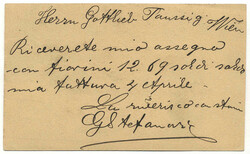 Herrn Gottlieb Taussig Wien
Riceverete mio assegno
con fiorini 12.69 soldi saldo
mia fattura 4 Aprile
La riverisco
G Stefanovi